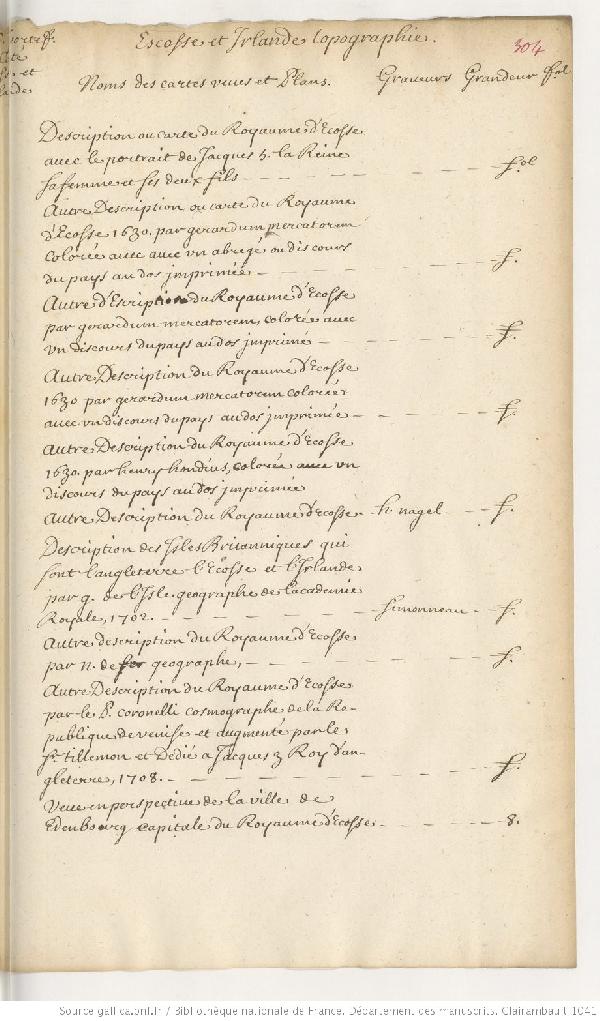 Escosse et Irlande topographie.
304
Noms des cartes vues et Plans. Graveurs Grandeur fol
Description ou carte du Royaume d'Ecosse
avec le portrait de Jacques 5. la Reine
sa femme et ses deux fils - - - - - - fol
Autre Description ou carte du Royaume
d'Ecosse 1630. par gerardum mercatorem
colorée avec vn abregé ou discours
du pays au dos jmprimée - - - - - f.
Autre d'Escription du Royaume d'Ecosse
par gerardum mercatorem, colorée avec
vn discours du pays au dos jmprimé - - - - f.
Autre Description du Royaume d'Ecosse
1630 par gerardum mercatorem colorée
avec vn discours du pays au dos jmprimée - - - - f.
Autre Description du Royaume d'Ecosse
1630. par henry hondius, colorée avec vn
discours du pays au dos jmprimée
Autre Description du Royaume d'Ecosse - h. nagel - - f.
Description des Isles Britanniques qui
sont l'angleterre l'Ecosse et l'Irlande
par g. de l'Isle geographe de l'academie
Royale, 1702. - - - - - Simonneau - f.
Autre description du Royaume d'Ecosse
par n. de fer geographe, - - - - - f.
Autre Description du Royaume d'Ecosse
par le P. coronelli cosmographe de la Re-
publique de venise et augmenté par le
Sr. tillemon et Dedié a Jacques 3 Roy d'an-
gleterre, 1708. - - - - - - f.
Veue en perspective de la ville de
Edenbourg capitale du Royaume d'Ecosse - - - - - 8.
Source gallica.bnf.fr / Bibliothèque nationale de France. Département des manuscrits. Clairambault 1041